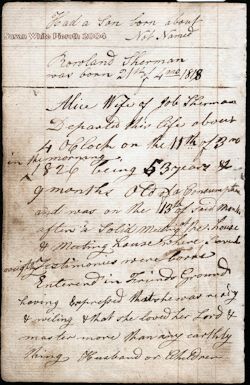 Had a Son born about
Susan White Pieroth 2004
Not Named
Rowland Sherman
was born 21st of 4 mo 1818
Alice Wife of Job Sherman
Departed this life about
4 O'Clock on the 11th of 3 mo
in the morning
1826 being 53 years &
9 months Old
and was on the 13th of said Month
after a Solid Meeting at the house
& Meeting house where several
weighty Testimonies were
Entered in Friends Ground
having expressed that she was ready
& willing & that she loved her Lord &
master more than any earthly
thing Husband or Children